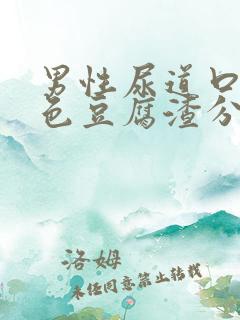 男性尿道口
色豆腐渣分
洛姆
未经同意禁止转载